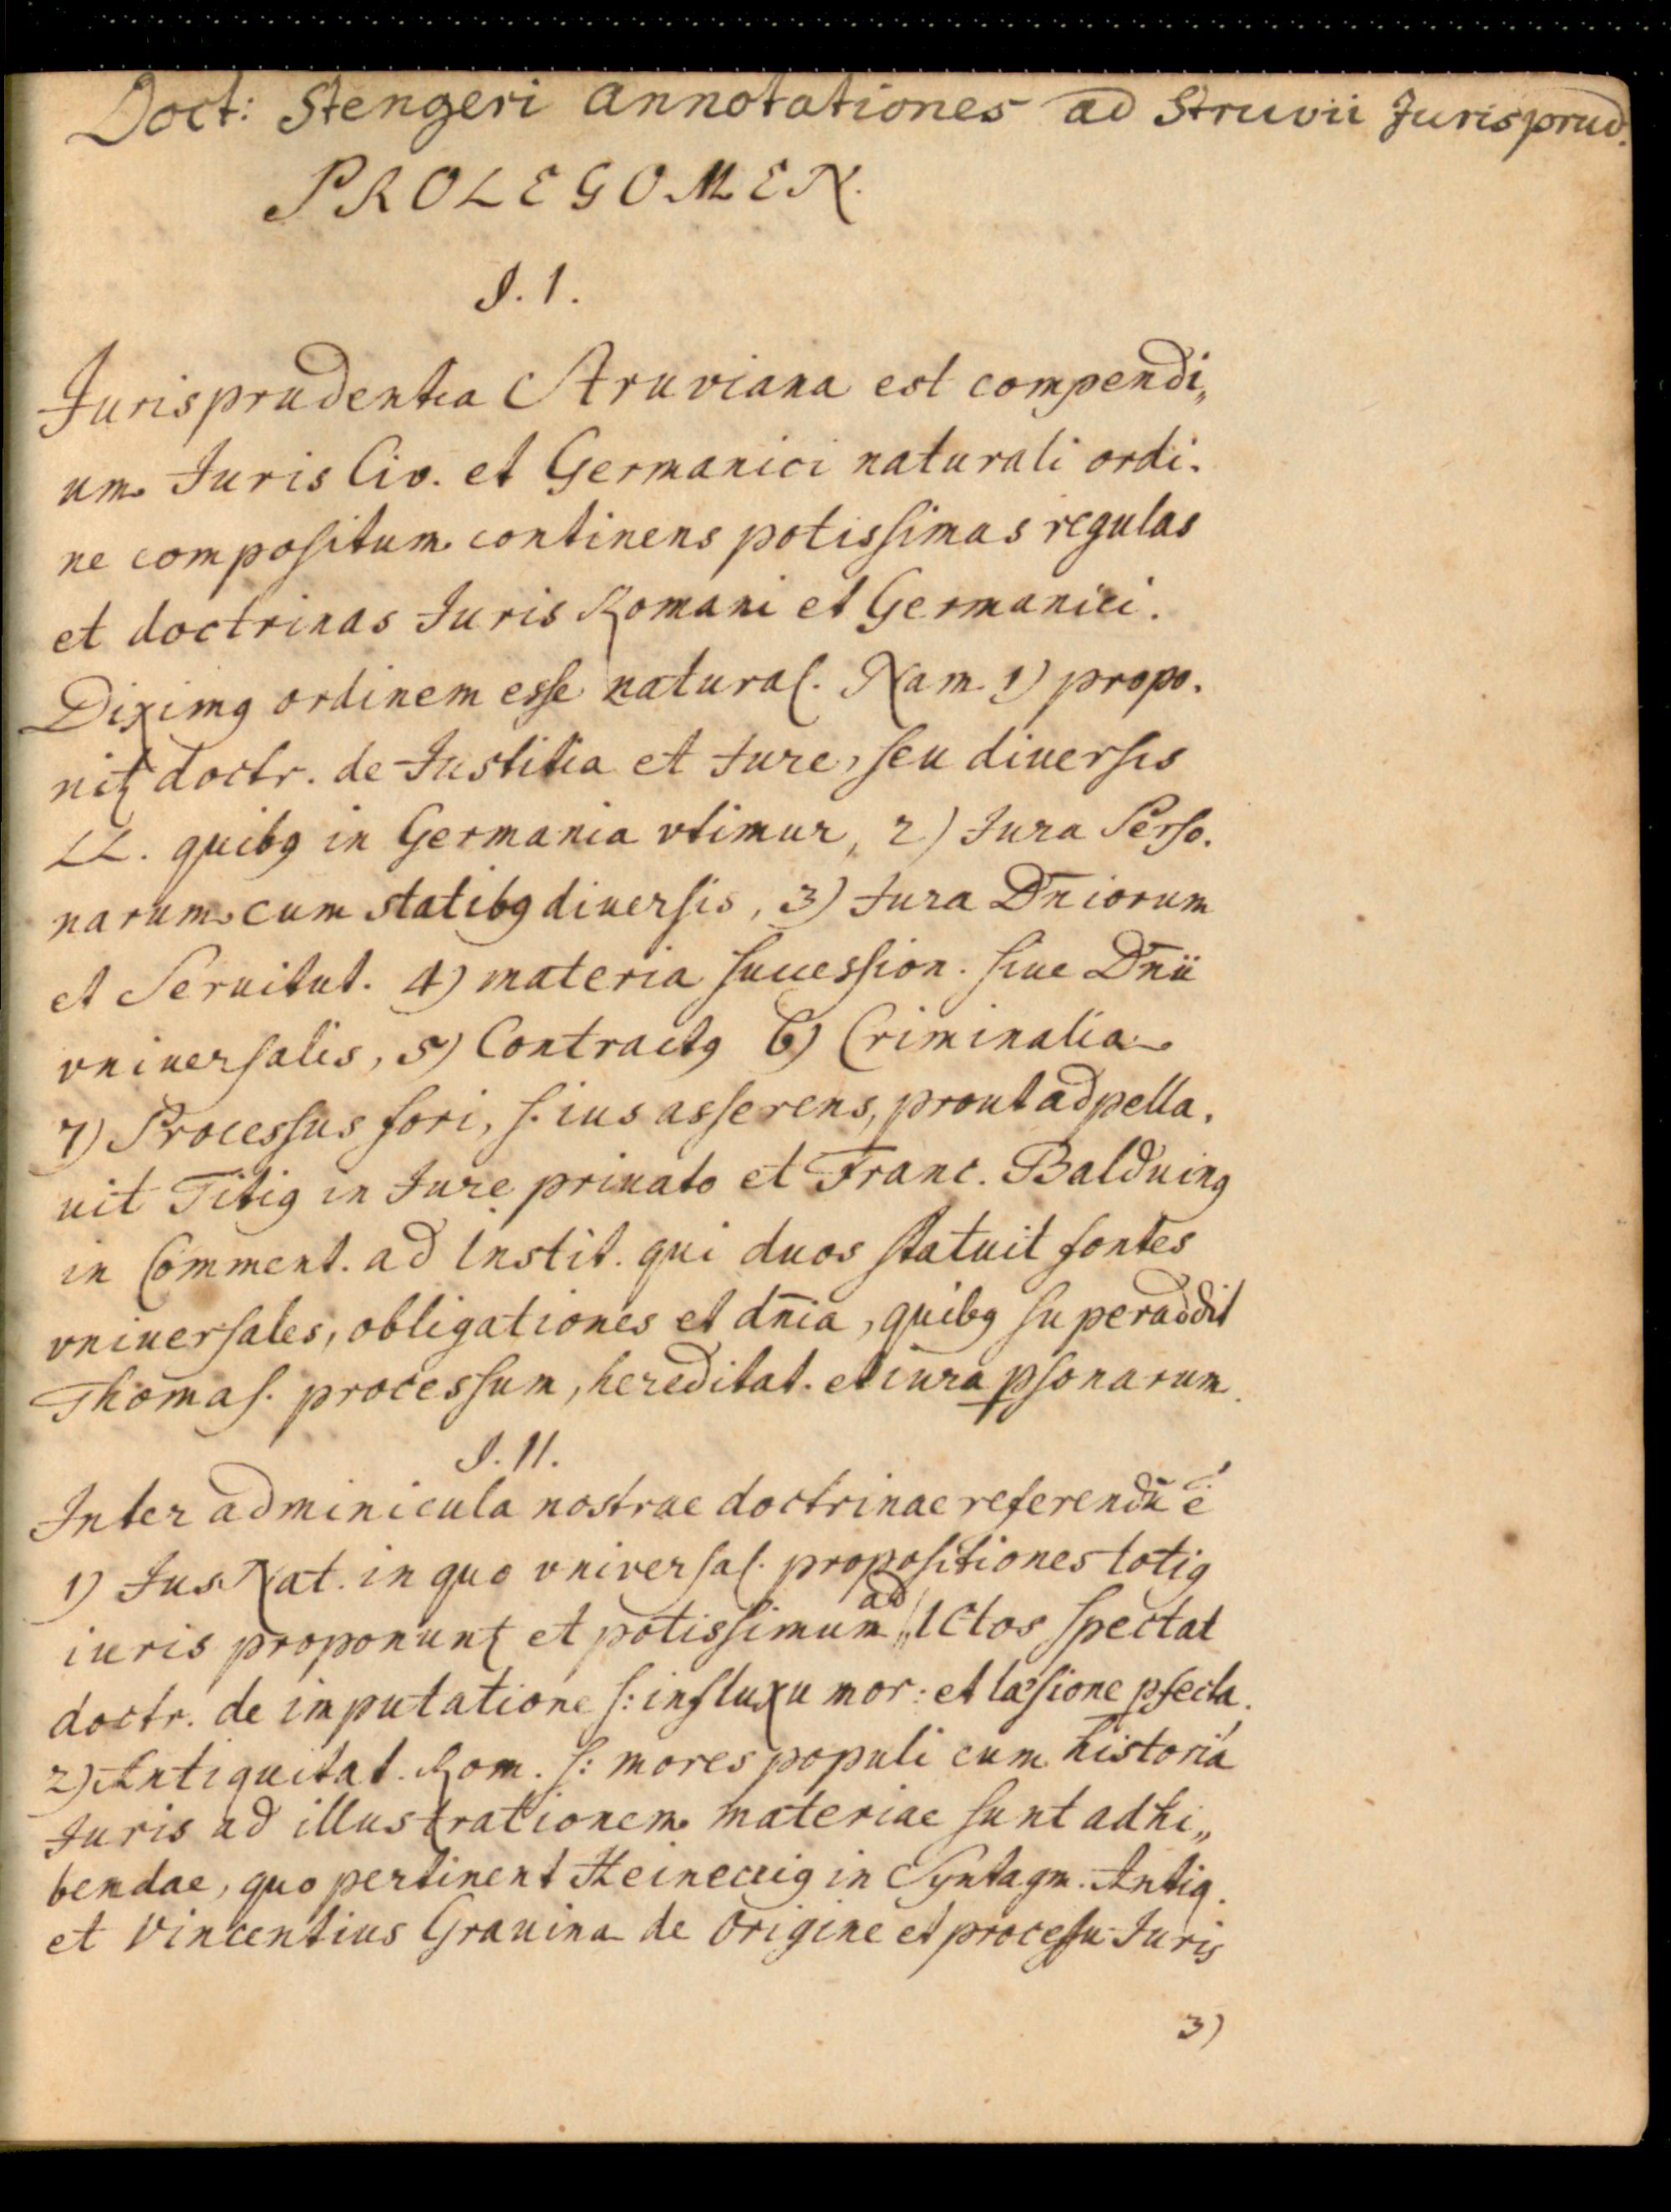 Doct: Stengeri Annotationes ad Struvii Jurisprud.
PROLEGOMEN.
§. 1.
Jurisprudentia Struviana est compendi„
um Juris Civ. et Germanici naturali ordi.
ne compositum continens potissimas regulas
et doctrinas Juris Romani et Germanici.
Diximꝰ ordinem esse natural. Nam 1) propo.
nitꝭ doctr. de Justitia et Jure, seu diuersis
LL. quibꝰ in Germania vtimur, 2) Jura Perso.
narum cum statibꝰ diuersis, 3) Jura Dn̄iorum
et Seruitut. 4) materia succession. siue Dn̄ii
vniuersalis, 5) Contractꝰ 6) Criminalia
7) Processus fori, s. ius asserens, prout adpella.
uit Titiꝰ in Jure priuato et Franc. Balduinꝰ
in Comment. ad Instit. qui duos statuit fontes
vniuersales, obligationes et dn̄ia, quibꝰ superaddit
Thomas. processum, hereditat. et iura ꝑsonarum.
§. II.
Inter adminicula nostrae doctrinae referendū ē
1) Jus Nat. in quo vniversal. propositiones totiꝰ
iuris proponuntꝭ et potissimum ad ICtos spectat
doctr. de imputatione s: influxu mor: et læsione ꝑfecta.
2) Antiquitat. Rom. s: mores populi cum historia
Juris ad illustrationem materiae sunt adhi„
bendae, quo pertinent Heinecciꝰ in Syntagm. Antiq.
et Vincentius Grauina de Origine et processu Juris
3)